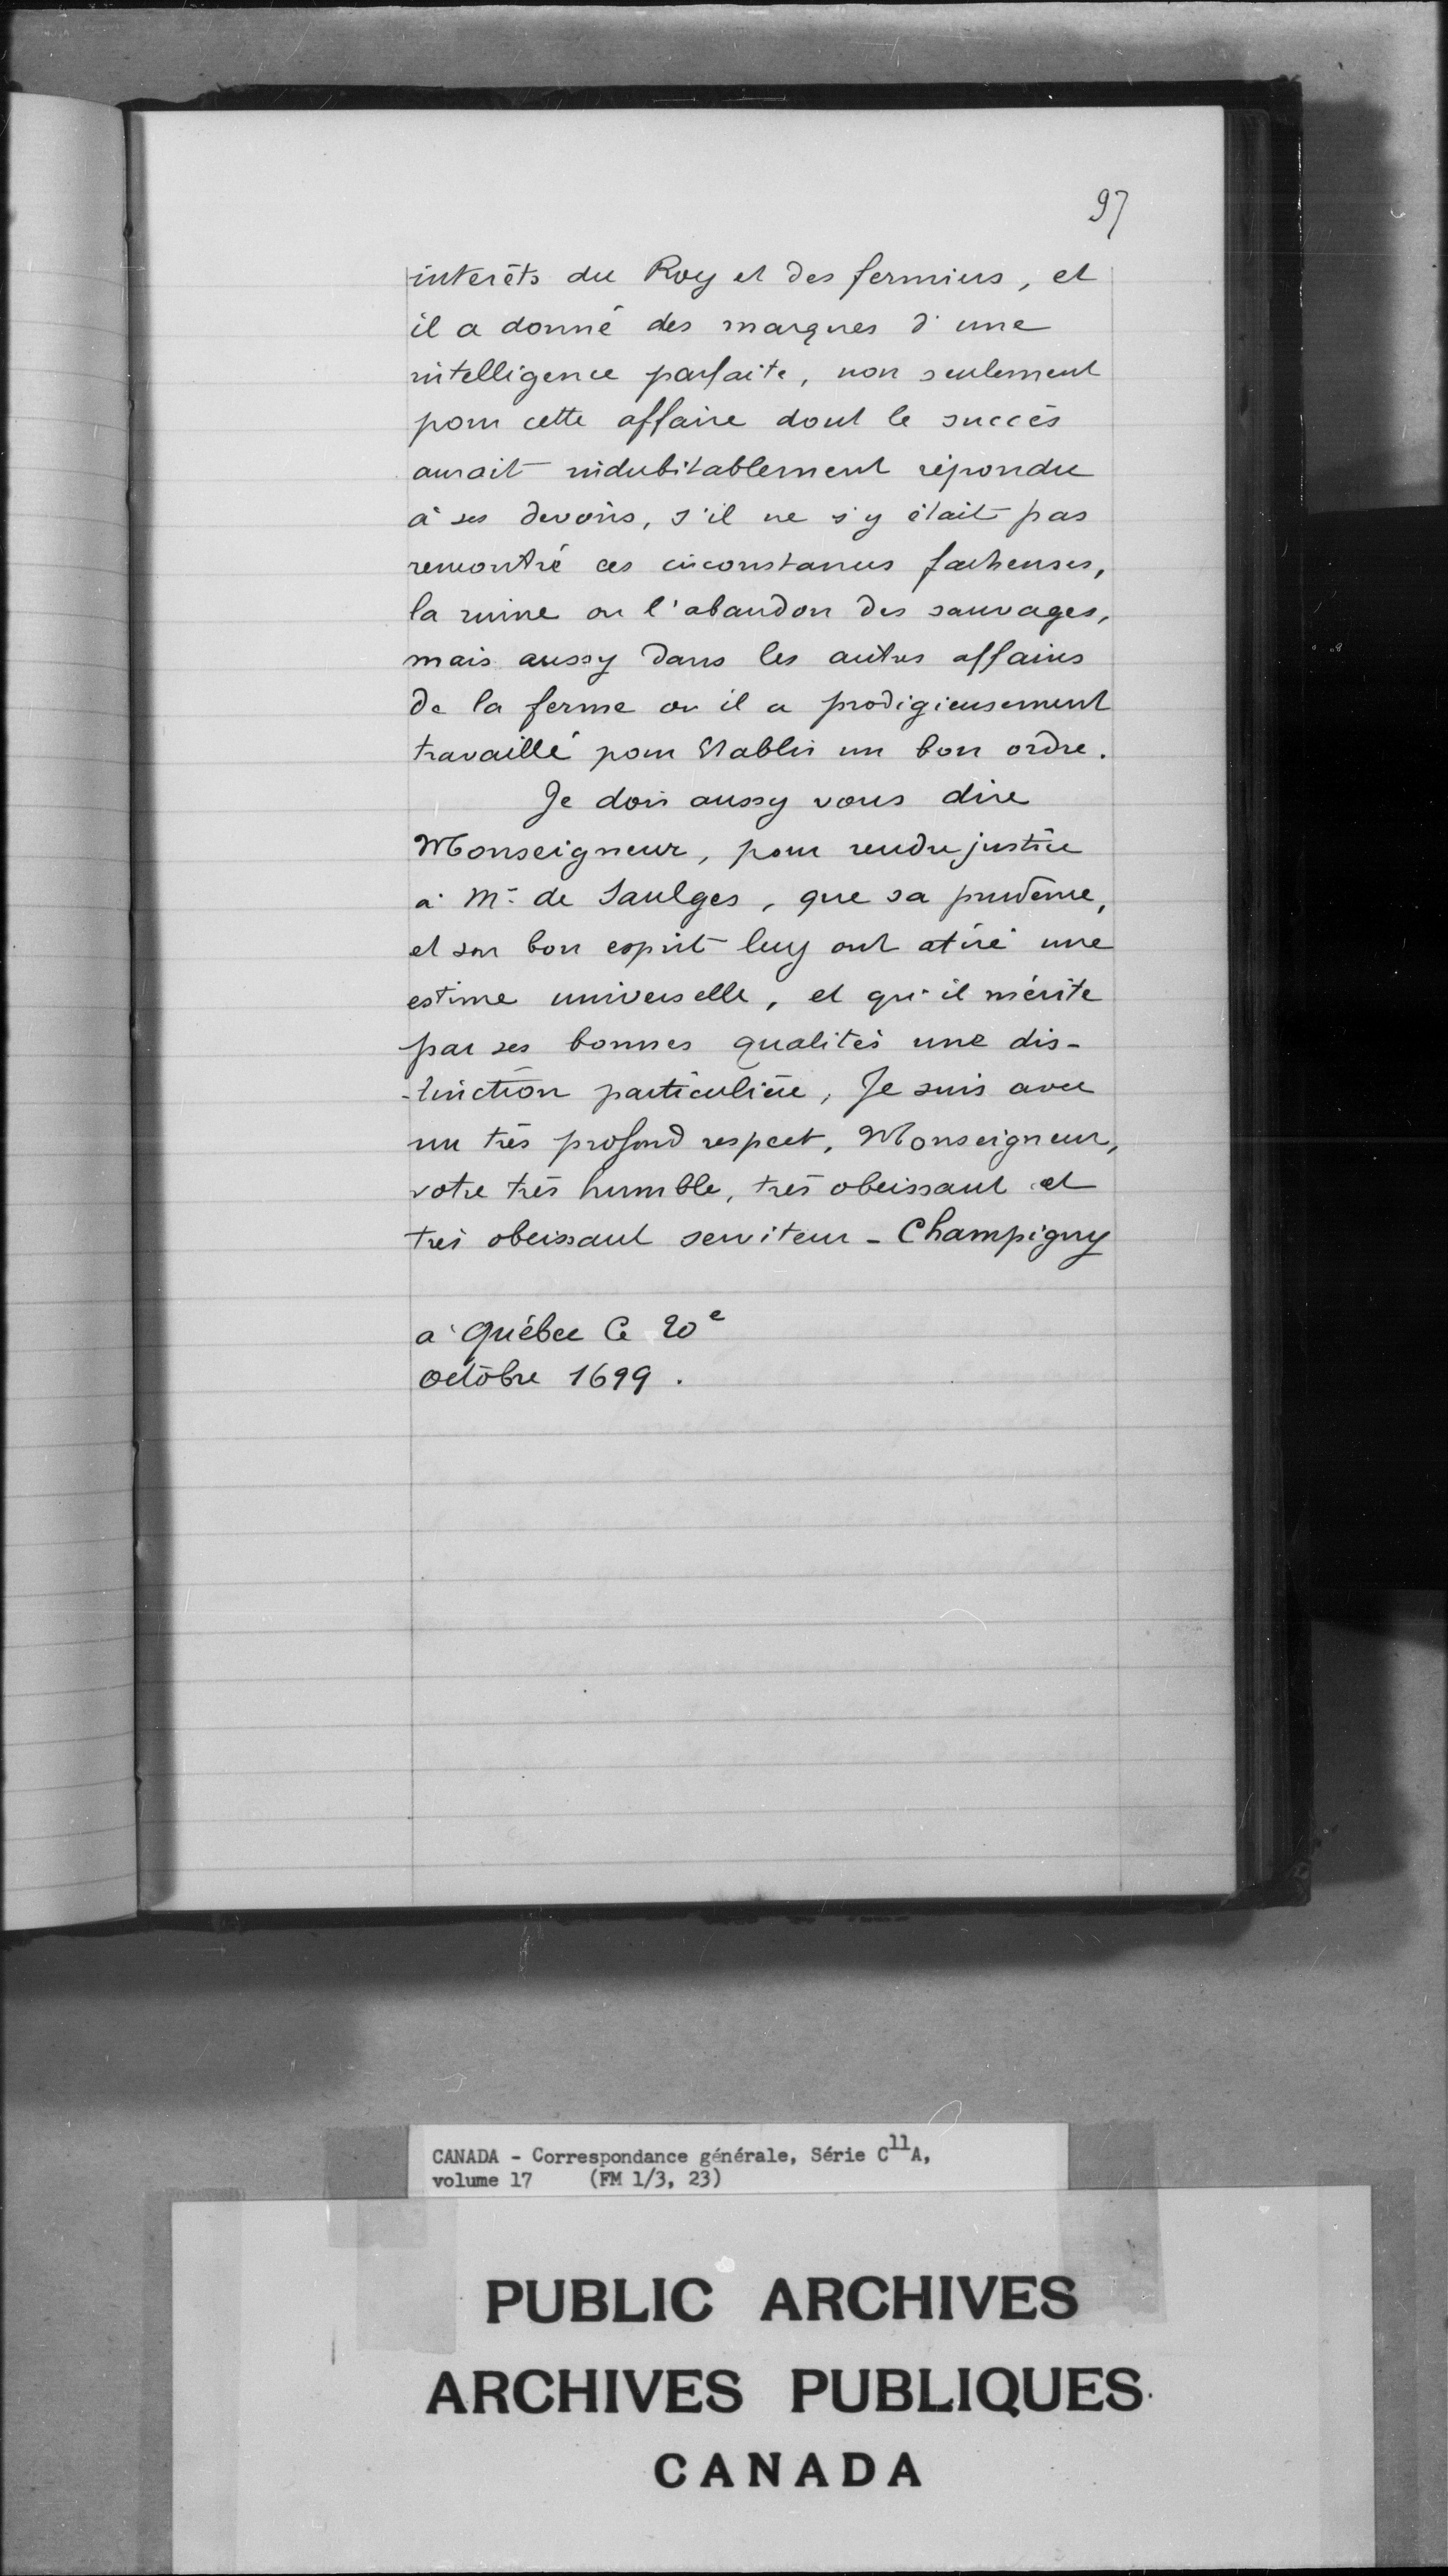 97
interêts du Roy et des fermiers, et
il a donné des marques d'une
intelligence parfaite, non seulement
pour cette affaire dont le succès
aurait indubitablement répondu
à ses devoirs, s'il ne s'y était pas
rencontré ces circonstances facheuses,
la ruine ou l'abandon des sauvages,
mais aussy dans les autres affaires
de la ferme ou il a prodigieusement
travaillé pour Etablir un bon ordre.
Je dois aussy vous dire
Monseigneur, pour rendre justice
à Mr de Saulges, que sa prudence,
et son bon esprit luy ont atiré une
estime universelle, et qu'il mérite
par ses bonnes qualités une dis-
-tinction particulière, Je suis avec
un très profond respect, Monseigneur,
votre très humble, très obeissant et
très obeissant serviteur - Champigny
à Québec Ce 20e
octobre 1699.
CANADA - Correspondance générale, Série C11A,
volume 17 (FM 1/3, 23)
PUBLIC ARCHIVES
ARCHIVES PUBLIQUES
CANADA